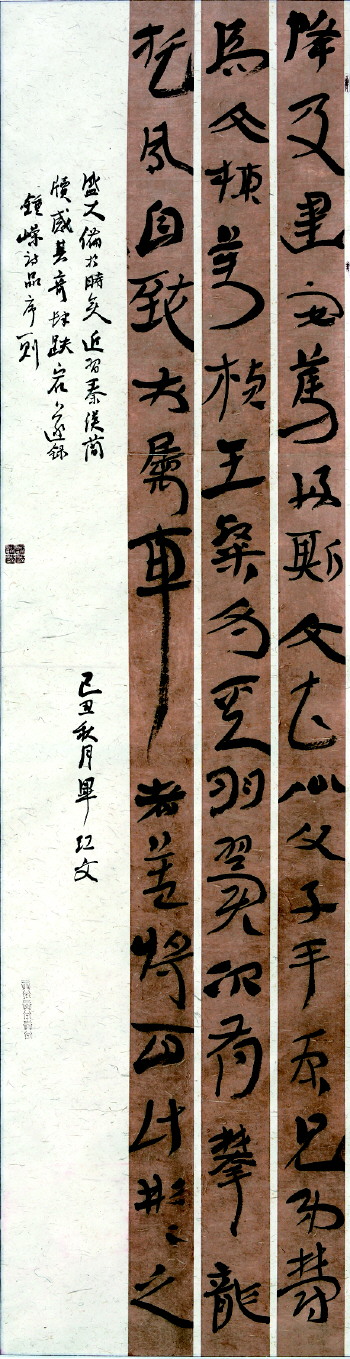 降及建安篤好斯文曹公父子平原兄弟鬱
為文棟劉楨王粲為其羽翼次有攀龍
托鳳自致於屬車者蓋將百計彬々之
盛大備於時矣近習秦漢簡
牘感其奇肆跌宕遂錄
鍾嶸詩品序一則
己丑秋月畢紅文